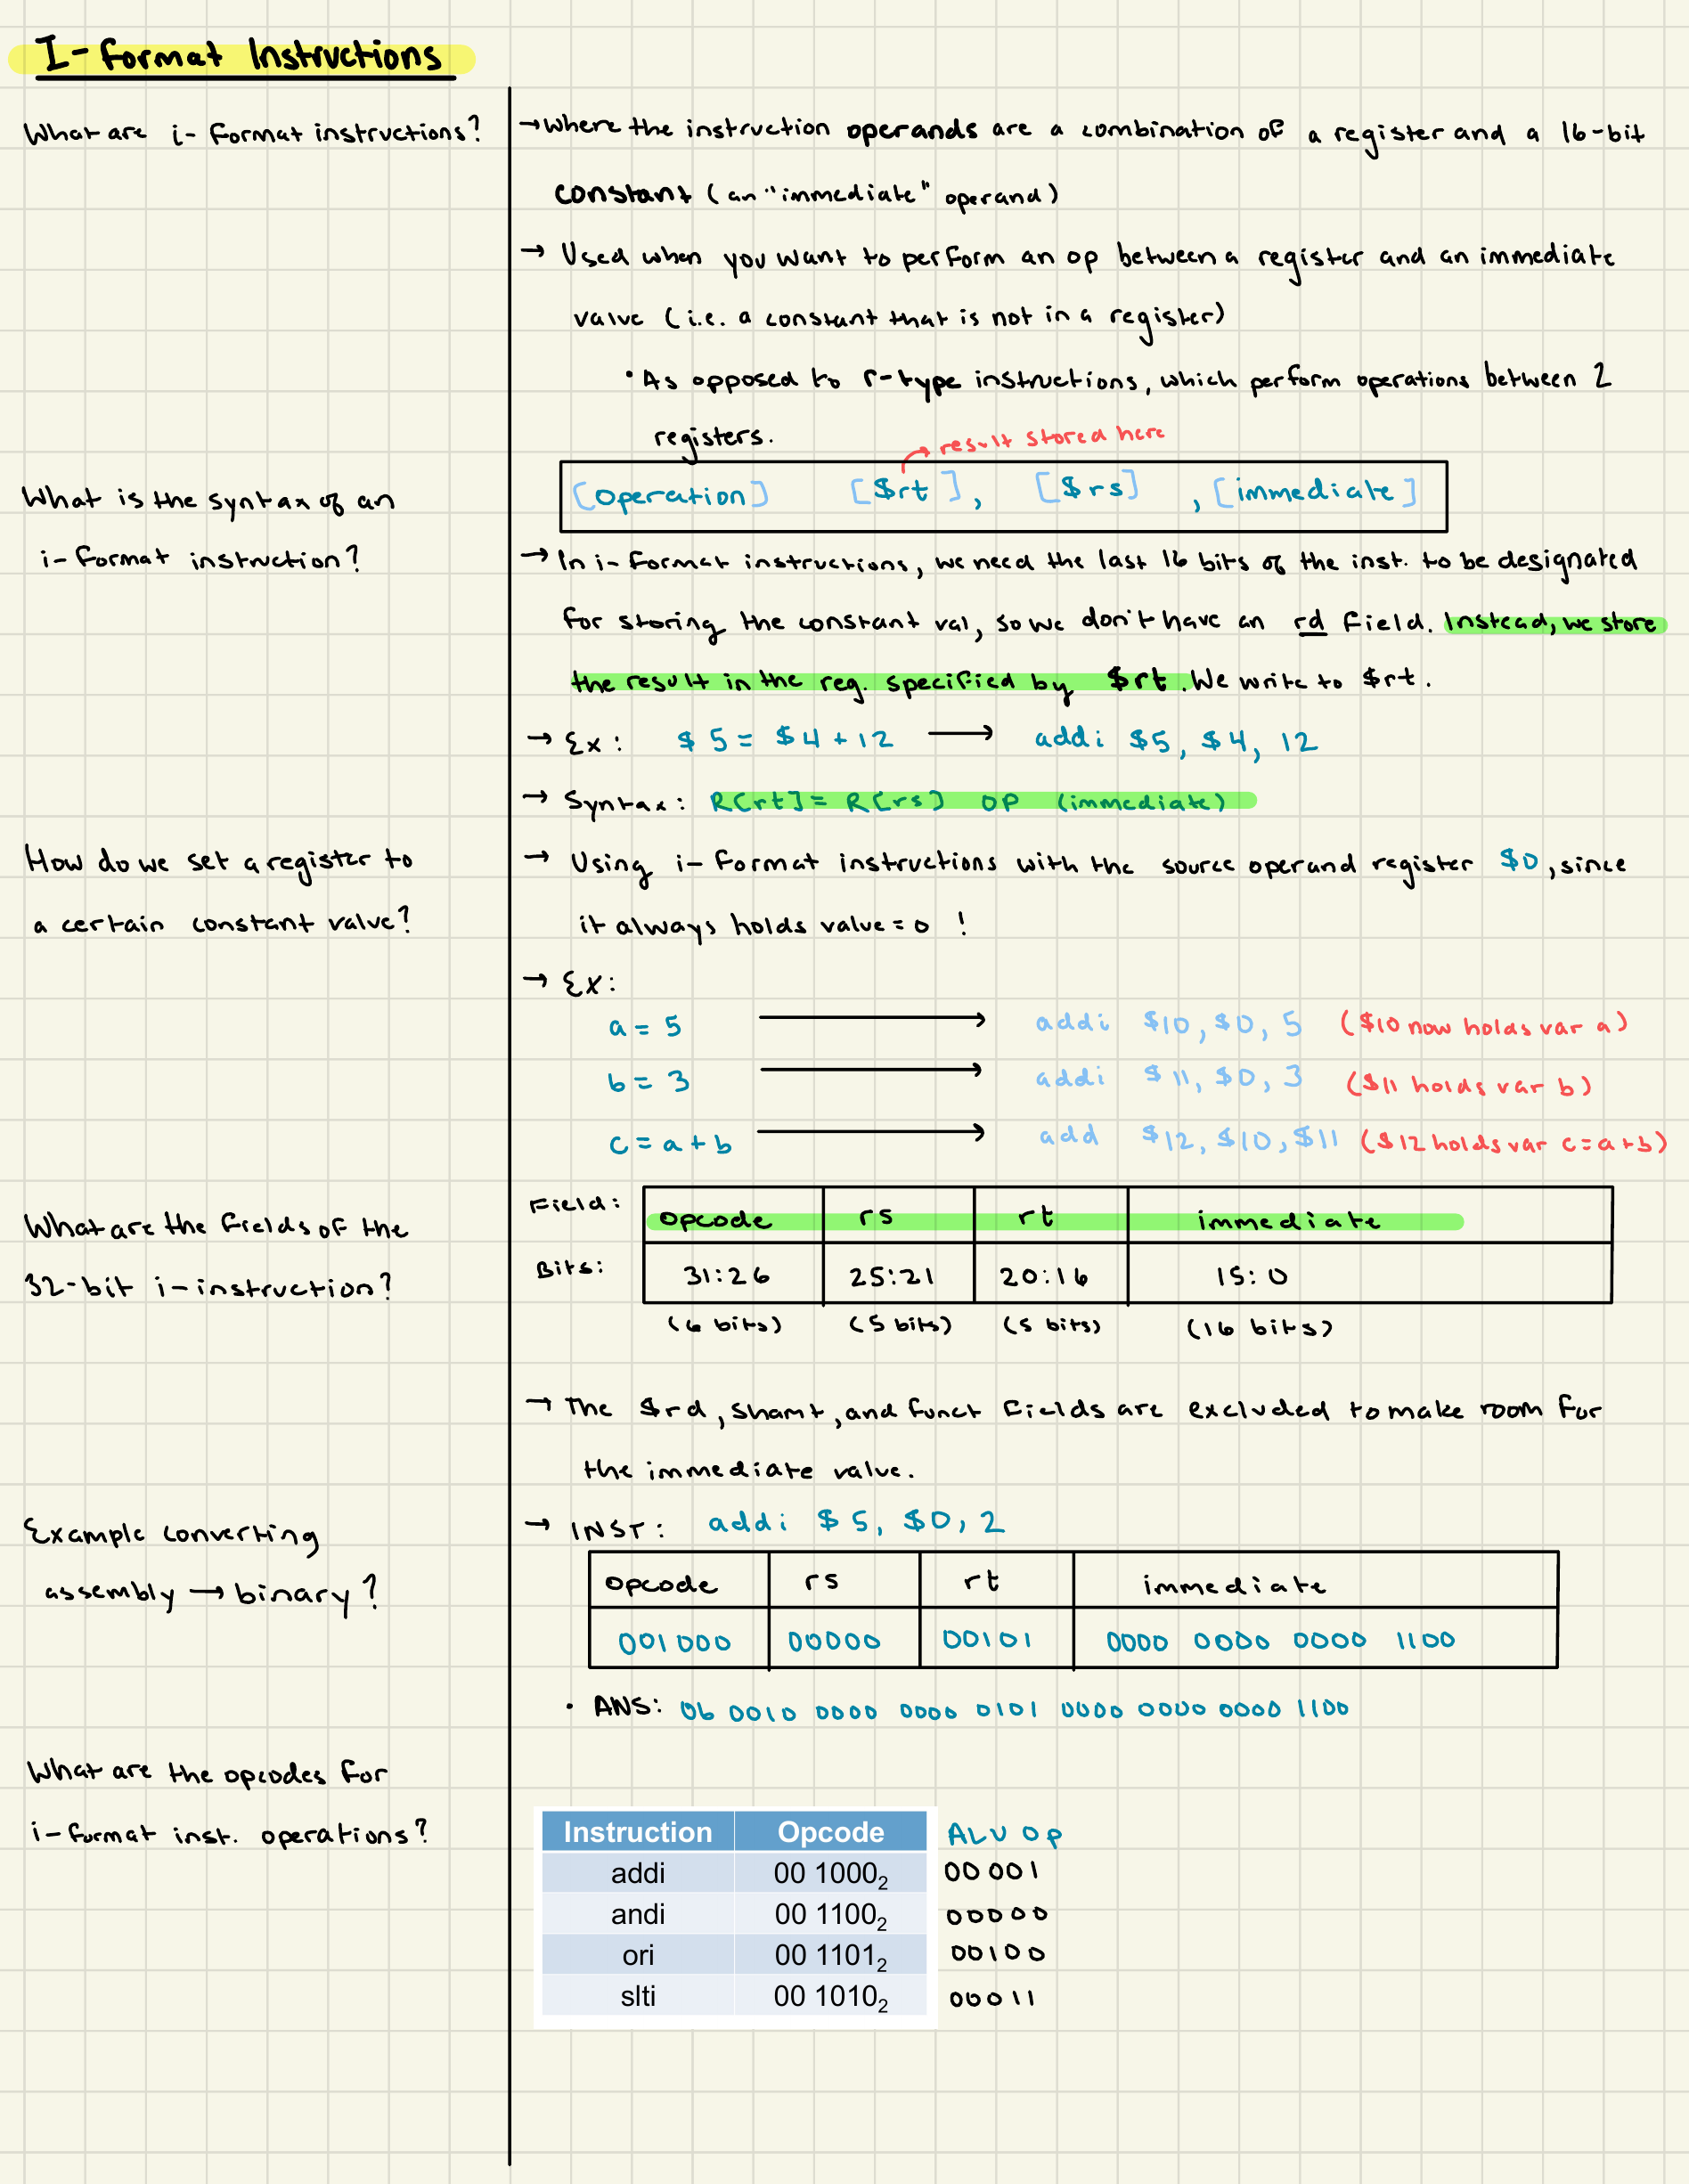 I-Format Instructions
What are i-Format instructions?
→ Where the instruction operands are a combination of a register and a 16-bit
constant (an "immediate" operand)
→ Used when you want to perform an op between a register and an immediate
value (i.e. a constant that is not in a register)
• As opposed to r-type instructions, which perform operations between 2
registers.
result stored here
What is the syntax of an
i-Format instruction?
[operation] [$rt], [$rs], [immediate]
→ In i-Format instructions, we need the last 16 bits of the inst. to be designated
for storing the constant val, so we don't have an rd field. Instead, we store
the result in the reg. specified by $rt. We write to $rt.
→ Ex: $5 = $4 + 12 → addi $5, $4, 12
→ Syntax: R[rt] = R[rs] OP (immediate)
How do we set a register to
a certain constant value?
→ Using i-Format instructions with the source operand register $0, since
it always holds value = 0 !
→ Ex:
a = 5 → addi $10, $0, 5 ($10 now holds var a)
b = 3 → addi $11, $0, 3 ($11 holds var b)
c = a + b → add $12, $10, $11 ($12 holds var c = a + b)
What are the fields of the
32-bit i-instruction?
Field: opcode rs rt immediate
Bits: 31:26 25:21 20:16 15:0
(6 bits) (5 bits) (5 bits) (16 bits)
→ The $rd, shamt, and funct fields are excluded to make room for
the immediate value.
Example converting
assembly → binary?
→ INST: addi $5, $0, 2
opcode rs rt immediate
001000 00000 00101 0000 0000 0000 1100
• ANS: 0b 0010 0000 0000 0101 0000 0000 0000 1100
What are the opcodes for
i-format inst. operations?
Instruction Opcode ALU Op
addi 00 1000₂ 00001
andi 00 1100₂ 00000
ori 00 1101₂ 00100
slti 00 1010₂ 00011